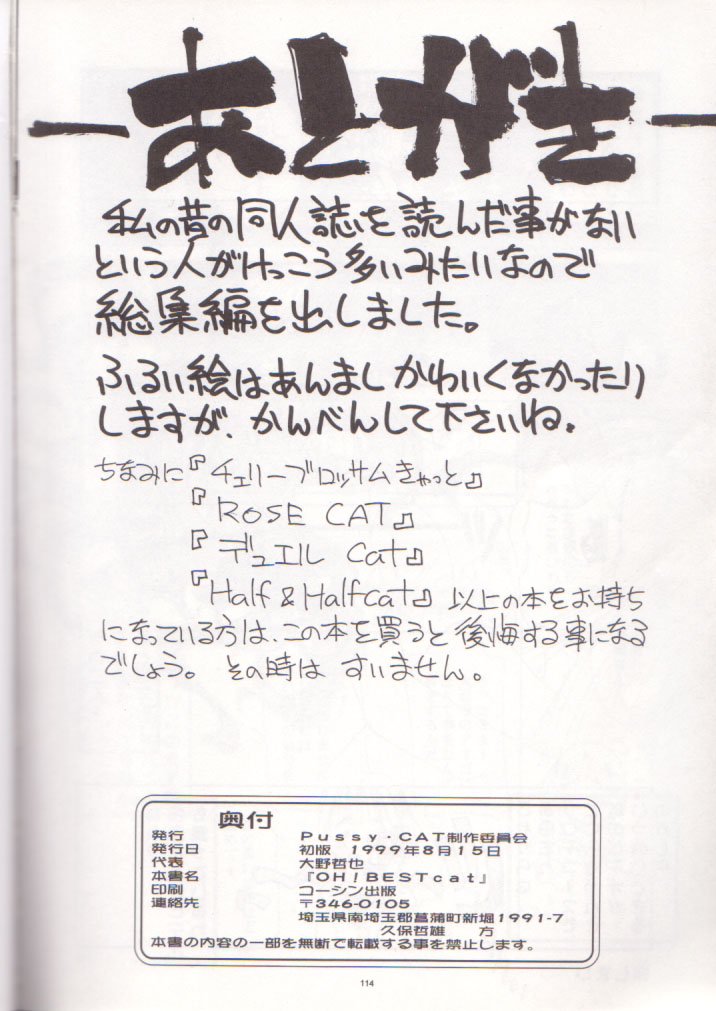 ーあとがきー
私の昔の同人誌を読んだ事がない
という人がけっこう多いみたいなので
総集編を出しました。
ふるい絵はあんましかわいくなかったり
しますが、かんべんして下さいね。
ちなみに『チェリーブロッサムきゃっと』
『ROSE CAT』
『デュエル Cat』
『Half & Halfcat』以上の本をお持ち
になっている方は、この本を買うと後悔する事になる
でしょう。 その時は すいません。
奥付
発行 Pussy・CAT制作委員会
発行日 初版 1999年8月15日
代表 大野哲也
本書名 『OH!BESTcat』
印刷 コーシン出版
連絡先 〒346-0105
埼玉県南埼玉郡菖蒲町新堀1991-7
久保哲雄 方
本書の内容の一部を無断で転載する事を禁止します。
114